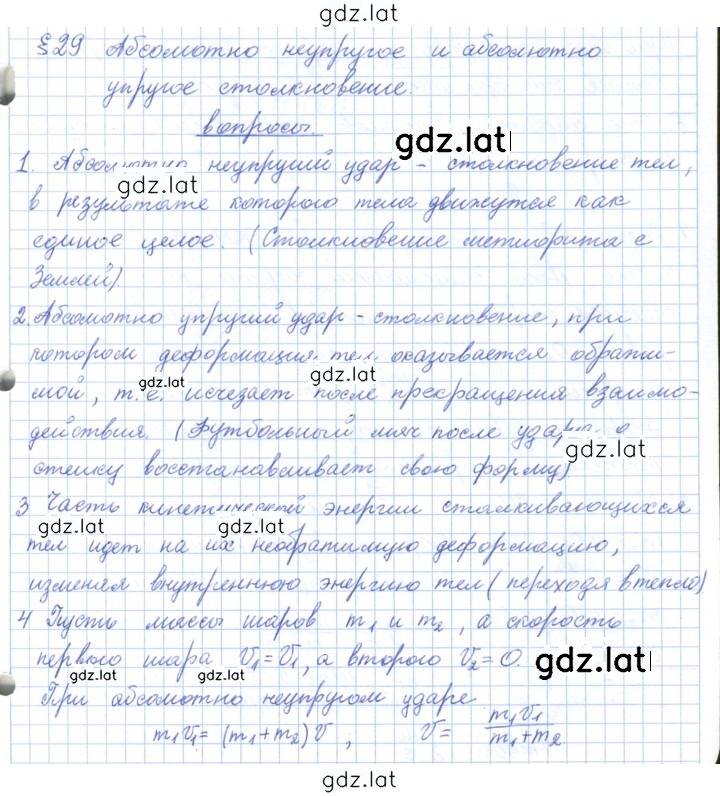 gdz.lat
§29 Абсолютно неупругое и абсолютно
упругое столкновение.
вопросы.
gdz.lat
1. Абсолютно неупругий удар - столкновение тел,
gdz.lat
в результате которого тела движутся как
единое целое. (Столкновение метиорита с
Землей).
2. Абсолютно упругий удар - столкновение, при
котором деформация тел оказывается обрати-
gdz.lat
gdz.lat
мой, т.е. исчезает после прекращения взаимо-
действия. (Футбольный мяч после удара о
gdz.lat
стенку восстанавливает свою форму)
3 Часть кинетической энергии сталкивающихся
gdz.lat
gdz.lat
тел идет на их необратимую деформацию,
изменяя внутреннюю энергию тел (переходя в тепло)
4 Пусть массы шаров m₁ и m₂, а скорость
первого шара V₁=V₁, а второго V₂=0.
gdz.lat
gdz.lat
gdz.lat
При абсолютно неупругом ударе
m₁V₁= (m₁+m₂)V ; V= m₁V₁/m₁+m₂
gdz.lat